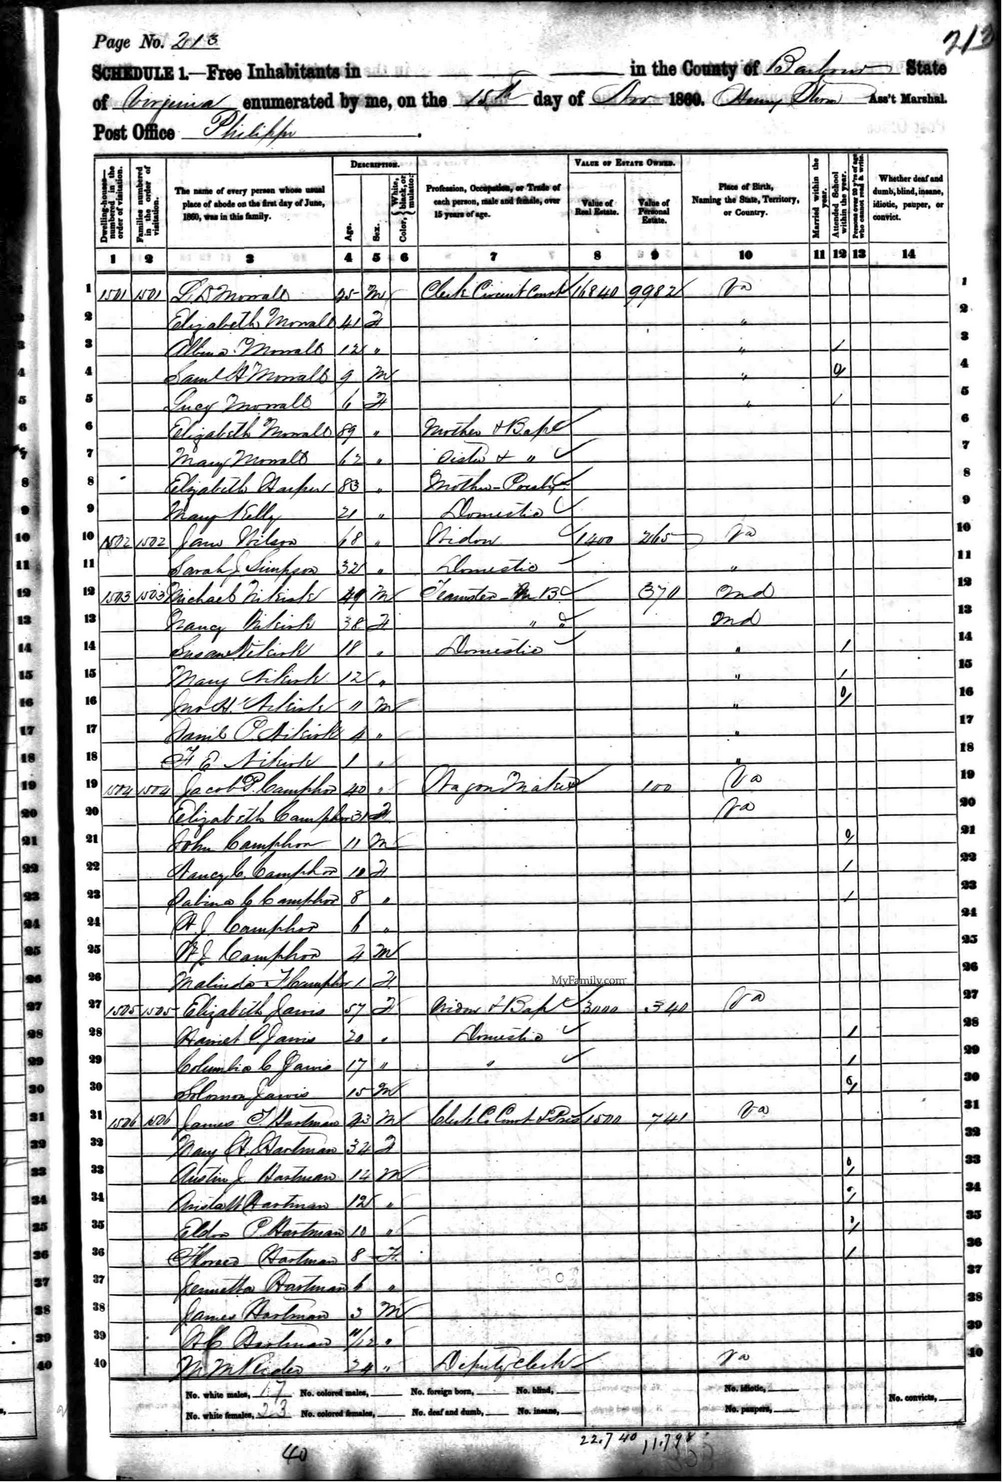 Page No. 213
213
SCHEDULE 1.—Free Inhabitants in in the County of Barbour State
of Virginia enumerated by me, on the 15th day of Nov 1860. Henry Ass't Marshal.
Post Office Philippi.
Dwelling-houses—numbered in the order of visitation.
Families numbered in the order of visitation.
The name of every person whose usual place of abode on the first day of June, 1860, was in this family.
DESCRIPTION.
Age.
Sex.
Color, White, black, or mulatto.
Profession, Occupation, or Trade of each person, male and female, over 15 years of age.
VALUE OF ESTATE OWNED.
Value of Real Estate.
Value of Personal Estate.
Place of Birth, Naming the State, Territory, or Country.
Married within the year.
Attended School within the year.
Persons over 20 y'rs of age who cannot read & write.
Whether deaf and dumb, blind, insane, idiotic, pauper, or convict.
1 2 3 4 5 6 7 8 9 10 11 12 13 14
1 1501 1501 L D Morrall 45 M Clerk Circuit Court 16840 9982 Va 1
2 Elizabeth Morrall 41 F " 2
3 Albina Morrall 12 " " 1 3
4 Saml H Morrall 9 M " 4
5 Lucy Morrall 6 F " 1 5
6 Elizabeth Morrall 89 " Mother & Bap 6
7 Mary Morrall 62 " Sister & " 7
8 Elizabeth Harper 83 " Mother 8
9 Mary Kelly 21 " Domestic 9
10 1502 1502 Jane Wilson 68 " Widow 1400 265 Va 10
11 Sarah J Simpson 32 " Domestic " 11
12 1503 1503 Michael Nikirk 49 M Teamster M B 370 Md 12
13 Nancy Nikirk 38 F " " Md 13
14 Susan Nikirk 18 " Domestic " 1 14
15 Mary Nikirk 12 " " 1 15
16 Jno H. Nikirk 11 M " 16
17 Danil C Nikirk 4 " " 17
18 F E Nikirk 1 " " 18
19 1504 1504 Jacob P. Camphor 40 " Wagon Maker 100 Va 19
20 Elizabeth Camphor 31 F Va 20
21 John Camphor 11 M 21
22 Nancy C Camphor 10 F 1 22
23 Sabina C Camphor 8 " 1 23
24 J Camphor 6 " 24
25 J Camphor 4 M 25
26 Malinda F Camphor 1 F 26
MyFamily.com
27 1505 1505 Elizabeth Jarvis 57 F Widow & Bap 3000 340 Va 27
28 Harriet C Jarvis 20 " Domestic 1 28
29 Columbia C Jarvis 17 " " 1 29
30 Solomon Jarvis 15 M 30
31 1506 1506 James T Hartman 43 M Clerk Co Court & Pres 1500 741 Va 31
32 Mary A. Hartman 34 F 32
33 Austin J Hartman 14 M 33
34 Hartman 12 " 34
35 Eldon P Hartman 10 " 35
36 Hartman 8 F 1 36
37 Jennetta Hartman 6 " 37
38 James Hartman 3 M 38
39 Hartman 11/12 " 39
40 M M 24 " Deputy Clerk Va 40
No. white males, 17 No. colored males, No. foreign born, No. blind, No. idiotic, No. convicts,
No. white females, 23 No. colored females, No. deaf and dumb, No. insane, No. paupers,
40 22.740 11.798